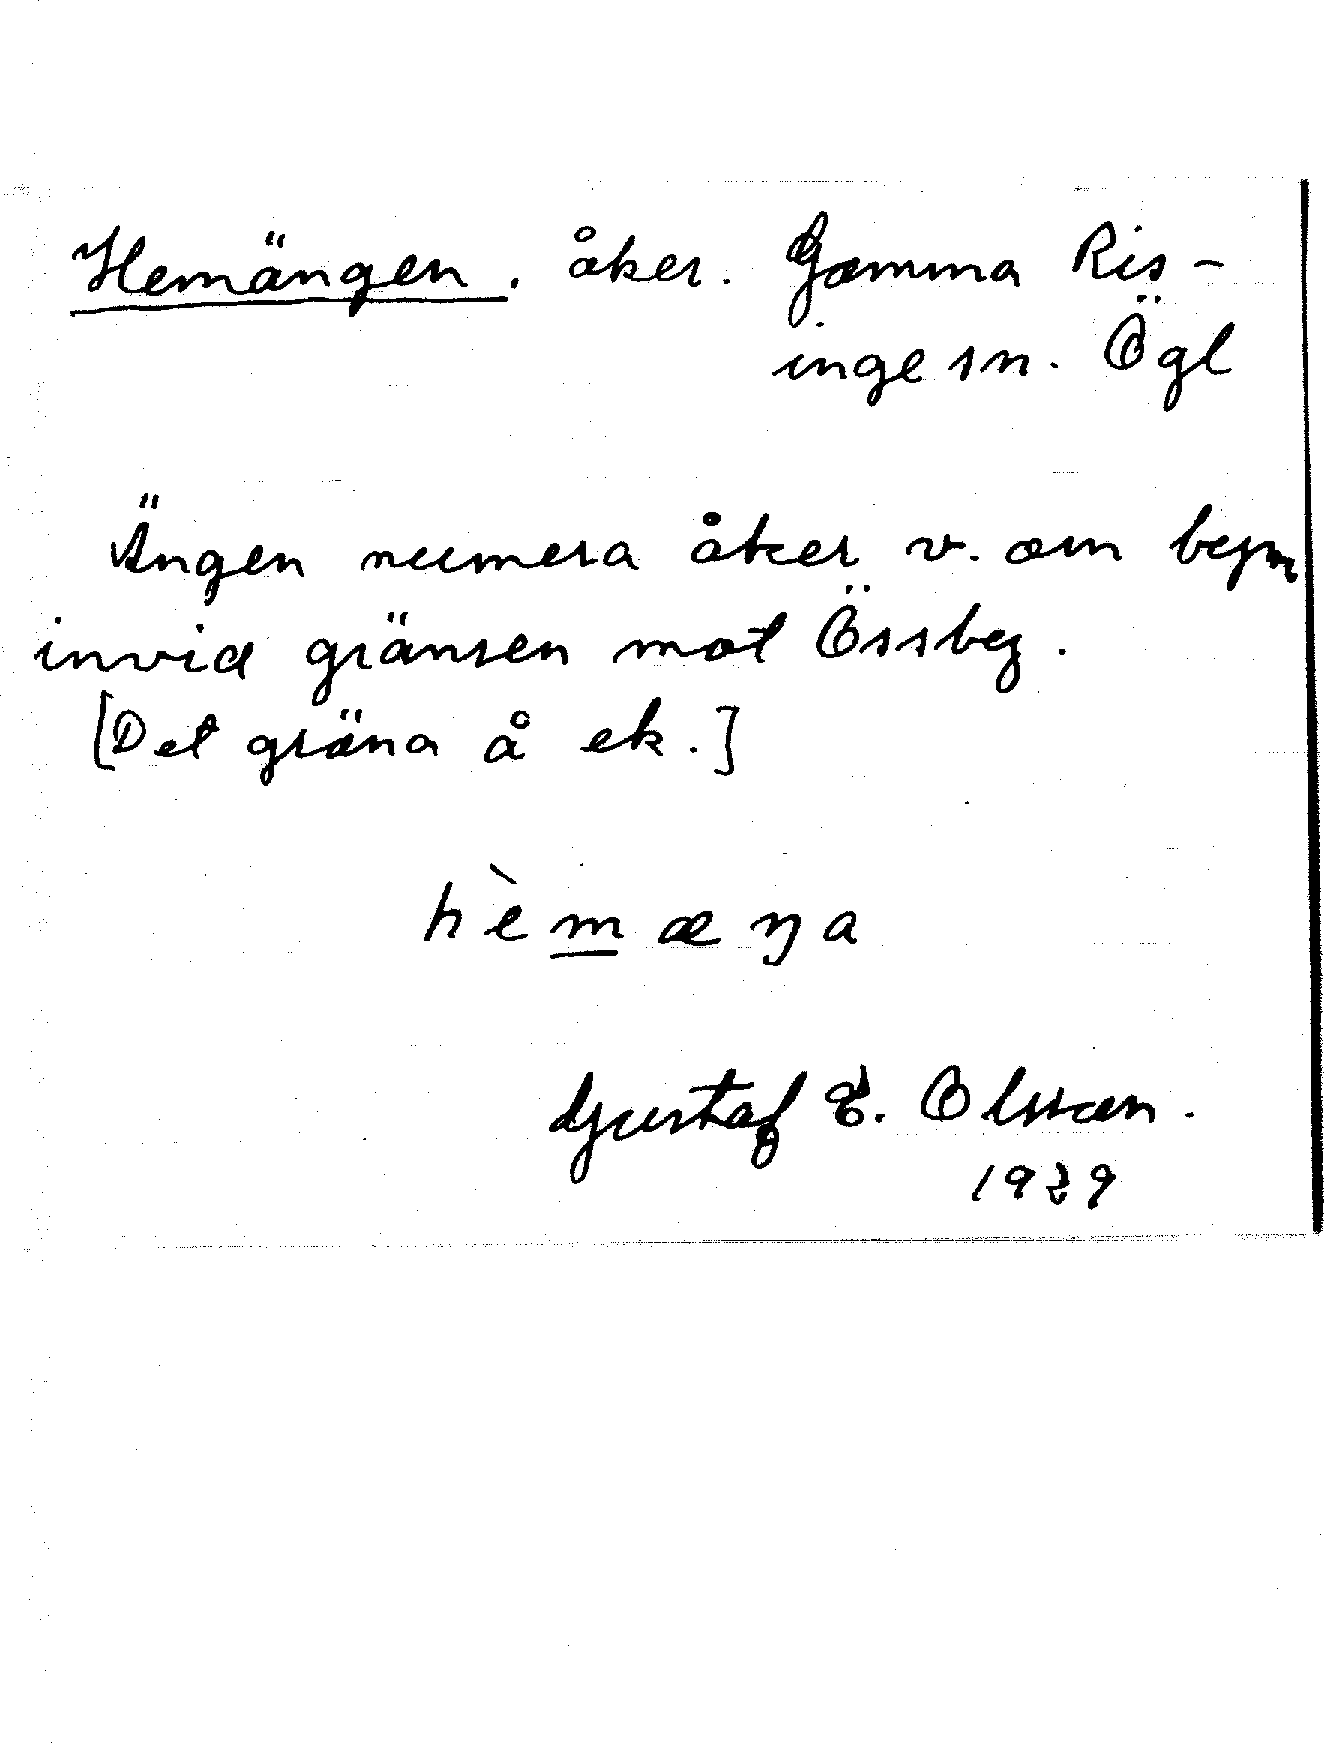 Hemängen. åker. Gomma Ris-
inge sn. Ögl
Ängen numera åker v. om bygn
invid gränsen mot Össby.
[Det gräna å ek.]
hèmæŋa
Gustaf E. Olsson.
1929